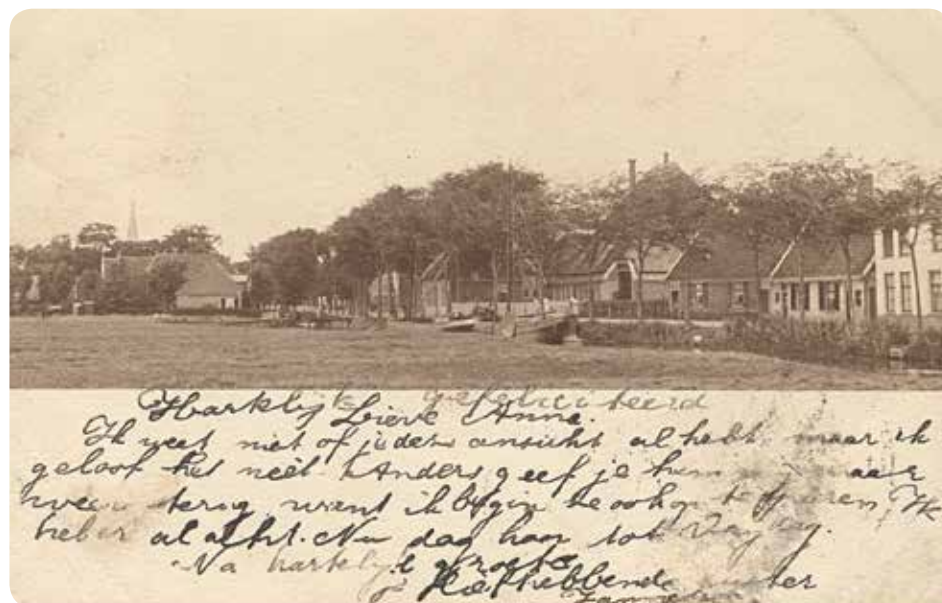 Harklijk gefeliciteerd
Lieve Anna.
Ik weet niet of je deze ansicht al hebt maar ik
geloof het niet Anders geef je hem maar
weer terug want ik begin ze ook op te sparen, Ik
heb er al acht. Nu dag hoor tot
Na harklijke groete
je Liefhebbende